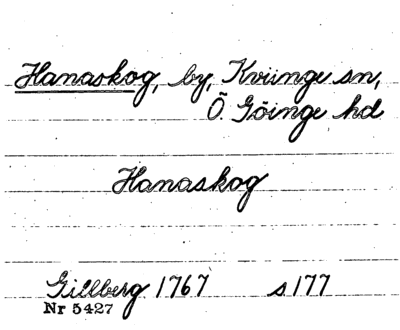 Hanaskog, by, Kviinge sn,
Ö. Göinge hd
Hanaskog
Gillberg 1767 s 177
Nr 5427